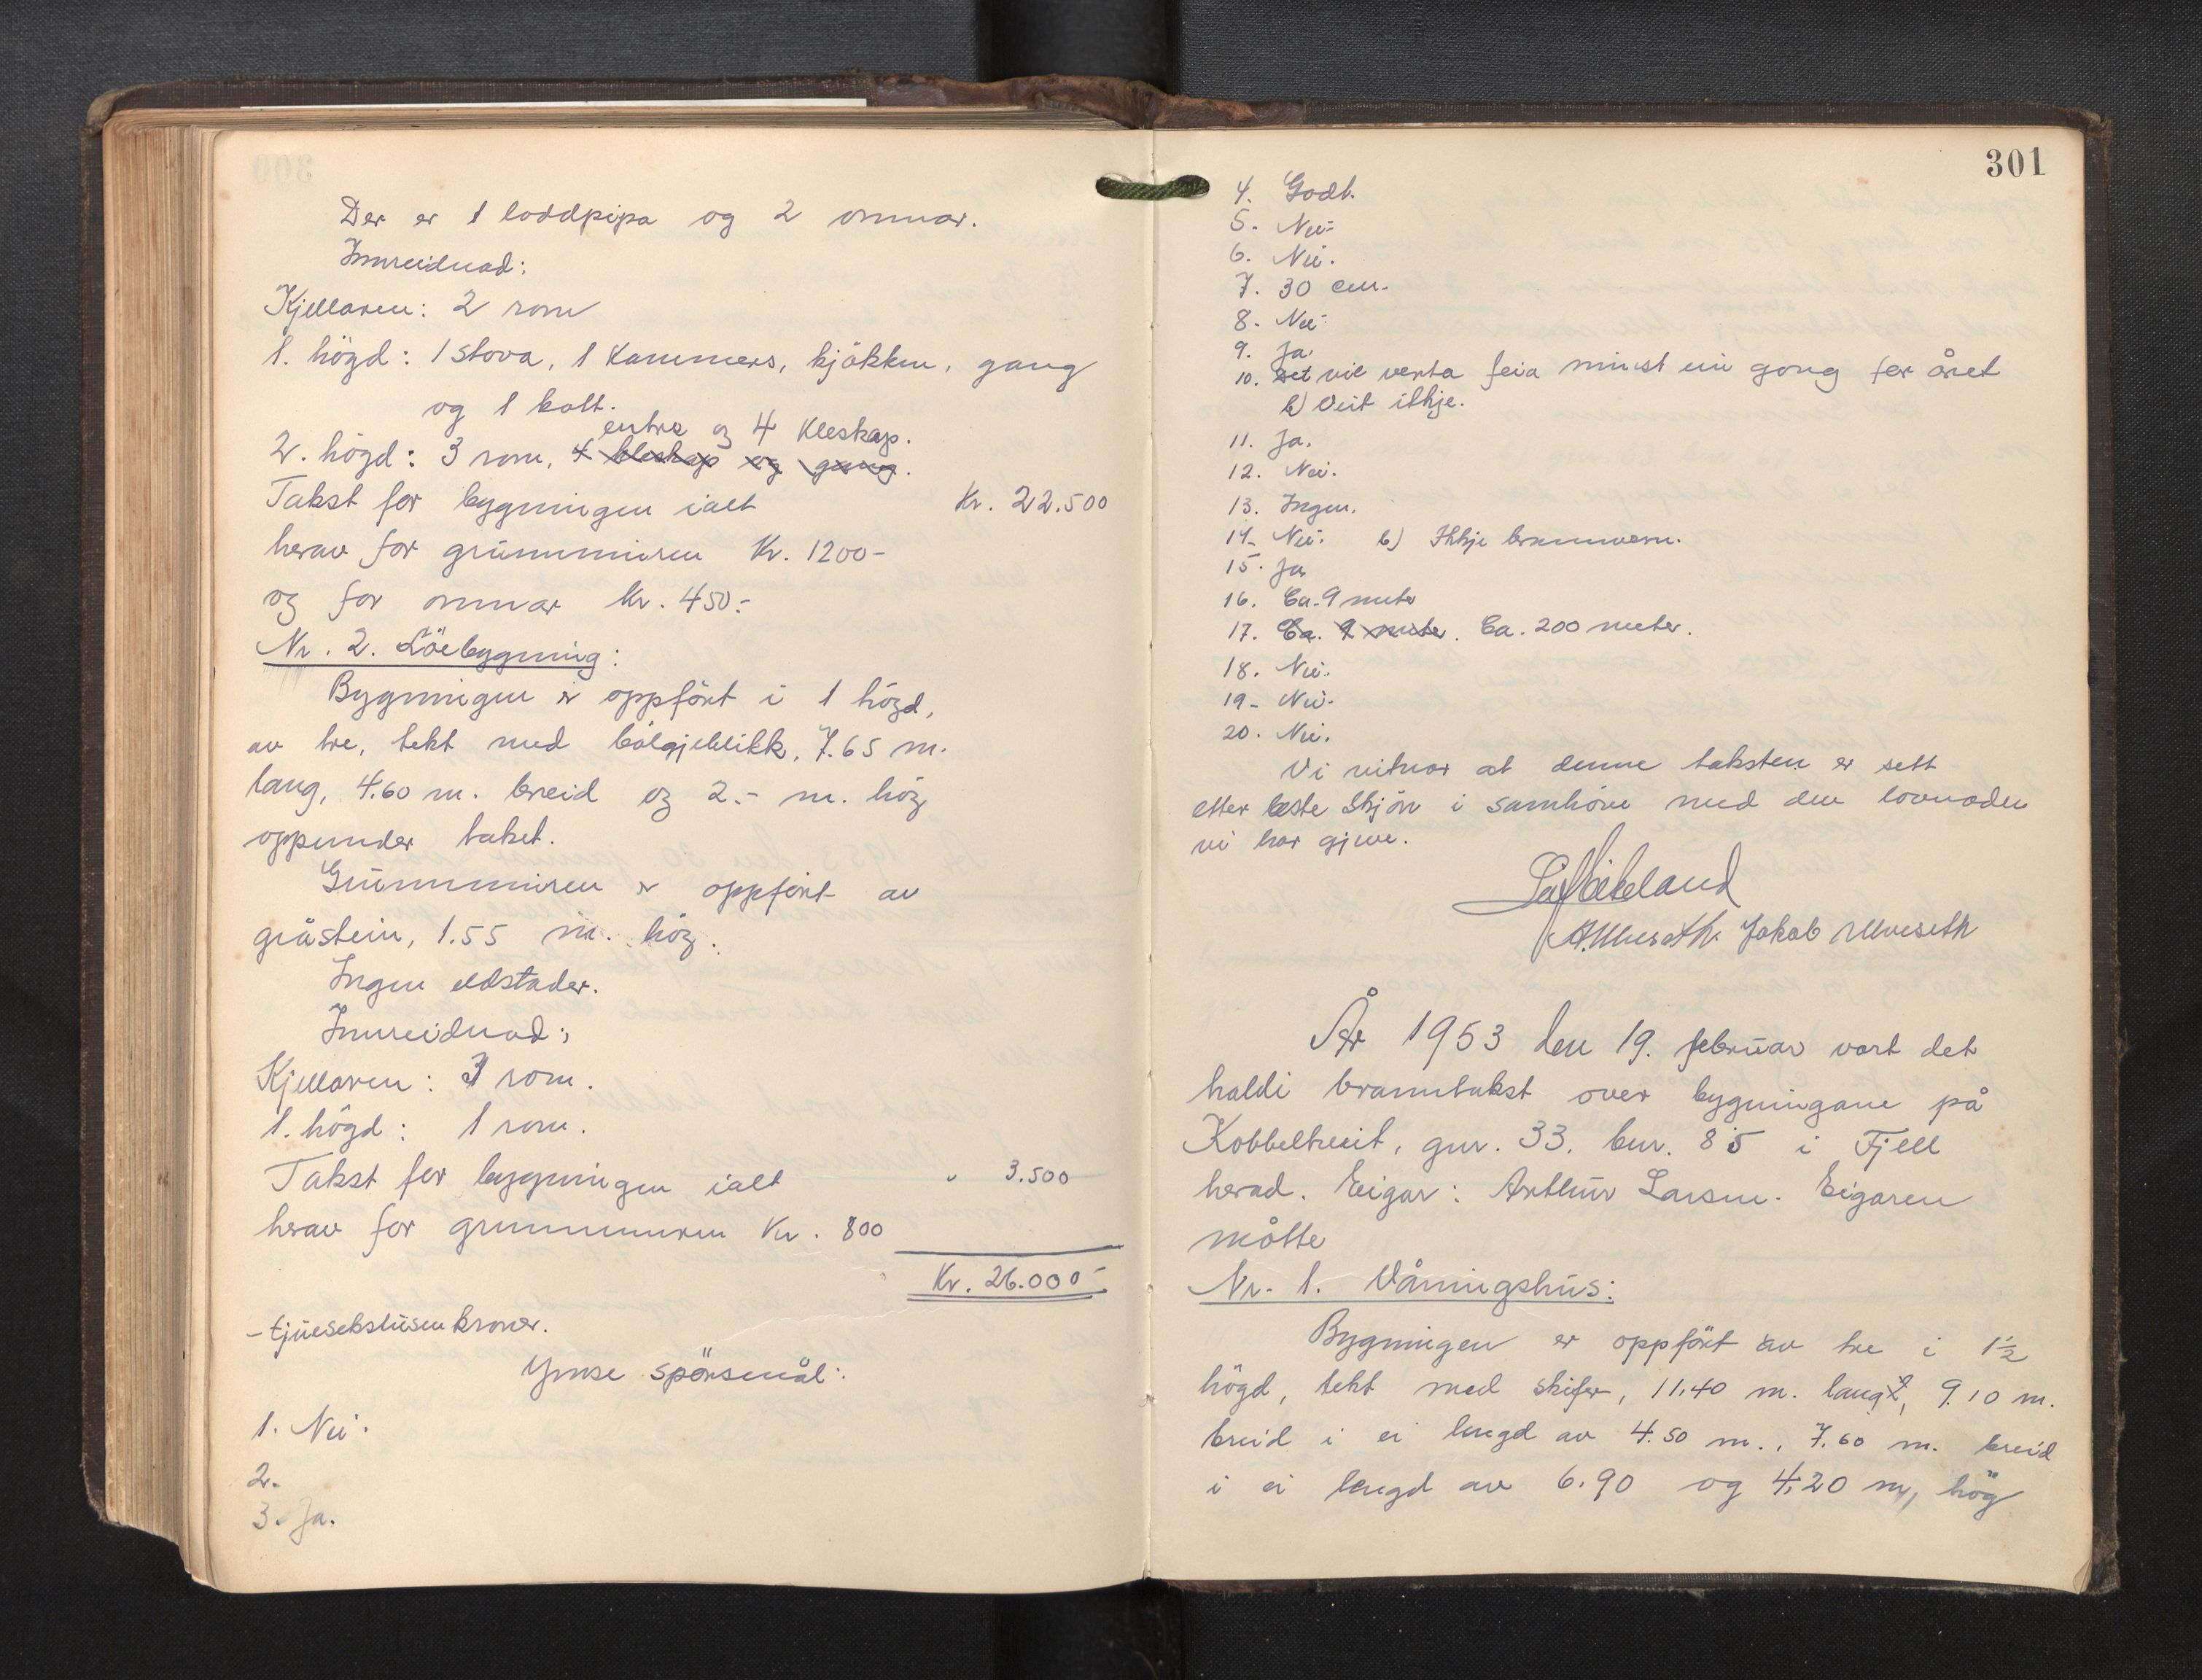 Der er 1 loddpipa og 2 omnar.
Innreidnad:
Kjellaren: 2 rom
1. högd: 1 stova, 1 kammers, kjökken, gang
og 1 kott.
entre og 4 kleskap.
2. högd: 3 rom, 4 kleskap og gang.
Takst for bygningen ialt Kr. 22.500
herav for grunnmuren Kr. 1200-
og for omnar Kr. 450.-
Nr. 2. Löebygning:
Bygningen er oppfört i 1 högd,
av tre, tekt med bölgjeblikk, 7.65 m.
lang, 4.60 m. breid og 2.- m. hög
oppunder taket.
Grunnmuren er oppfört av
gråstein, 1.55 m. hög.
Ingen eldstader.
Innreidnad:
Kjellaren: 3 rom.
1. högd: 1 rom.
Takst for bygningen ialt " 3.500
herav for grunnmuren Kr. 800
Kr. 26.000-
- tjuesekstusen kroner.
Ymse spörsmål:
1. Nei.
2.
3. Ja.
301
4. Godt.
5. Nei.
6. Nei.
7. 30 cm.
8. Nei.
9. Ja.
10. Det vil verta feia minst ein gong for året
b) Veit ikkje.
11. Ja.
12. Nei.
13. Ingen.
14. Nei. b) Ikkje brannvern.
15. Ja
16. Ca. 9 meter
17. Ca. 9 meter. Ca. 200 meter.
18. Nei.
19. Nei.
20. Nei.
Vi vitnar at denne taksten er sett
etter beste skjön i samhöve med den lovnaden
vi har gjeve.
Jakob Ulveseth
År 1953 den 19. februar vart det
haldi branntakst over bygningane på
Kobbeltveit, gnr. 33, bnr. 85 i Fjell
herad. Eigar: Arthur Larsen. Eigaren
måtte
Nr. 1. Våningshus:
Bygningen er oppfört av tre i 1½
högd, tekt med skifer, 11.40 m. lang, 9.10 m.
breid i ei lengd av 4.50 m., 7.60 m. breid
i ei lengd av 6.90 og 4,20 m, hög